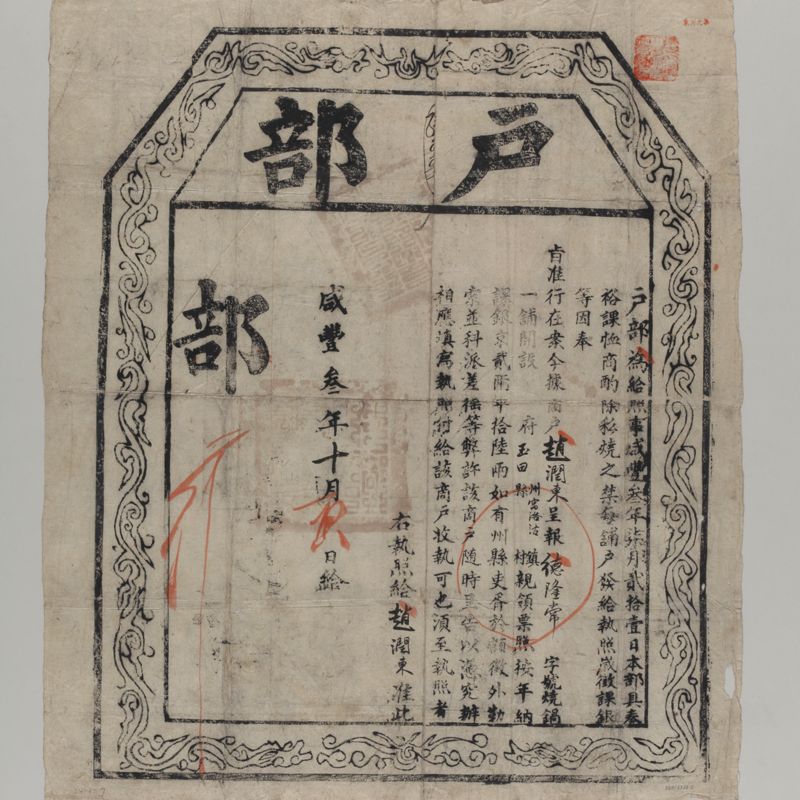 戶部
戶部為給照事咸豐叁年柒月貳拾壹日本部具奏
裕課恤商酌除私燒之禁每舖戶發給執照歲徵課銀
等因奉
旨准行在案今據商戶趙潤東呈報德隆常字號燒鍋
一舖開設 府玉田州縣窩洛沽鎮村親領票照按年納
課銀京貳兩平拾陸兩如有州縣吏胥於額徵外勒
索並科派差徭等弊許該商戶隨時呈告以憑究辦
相應填寫執照付給該商戶收執可也須至執照者
右執照給趙潤東准此
咸豐叁年十月 日給
部